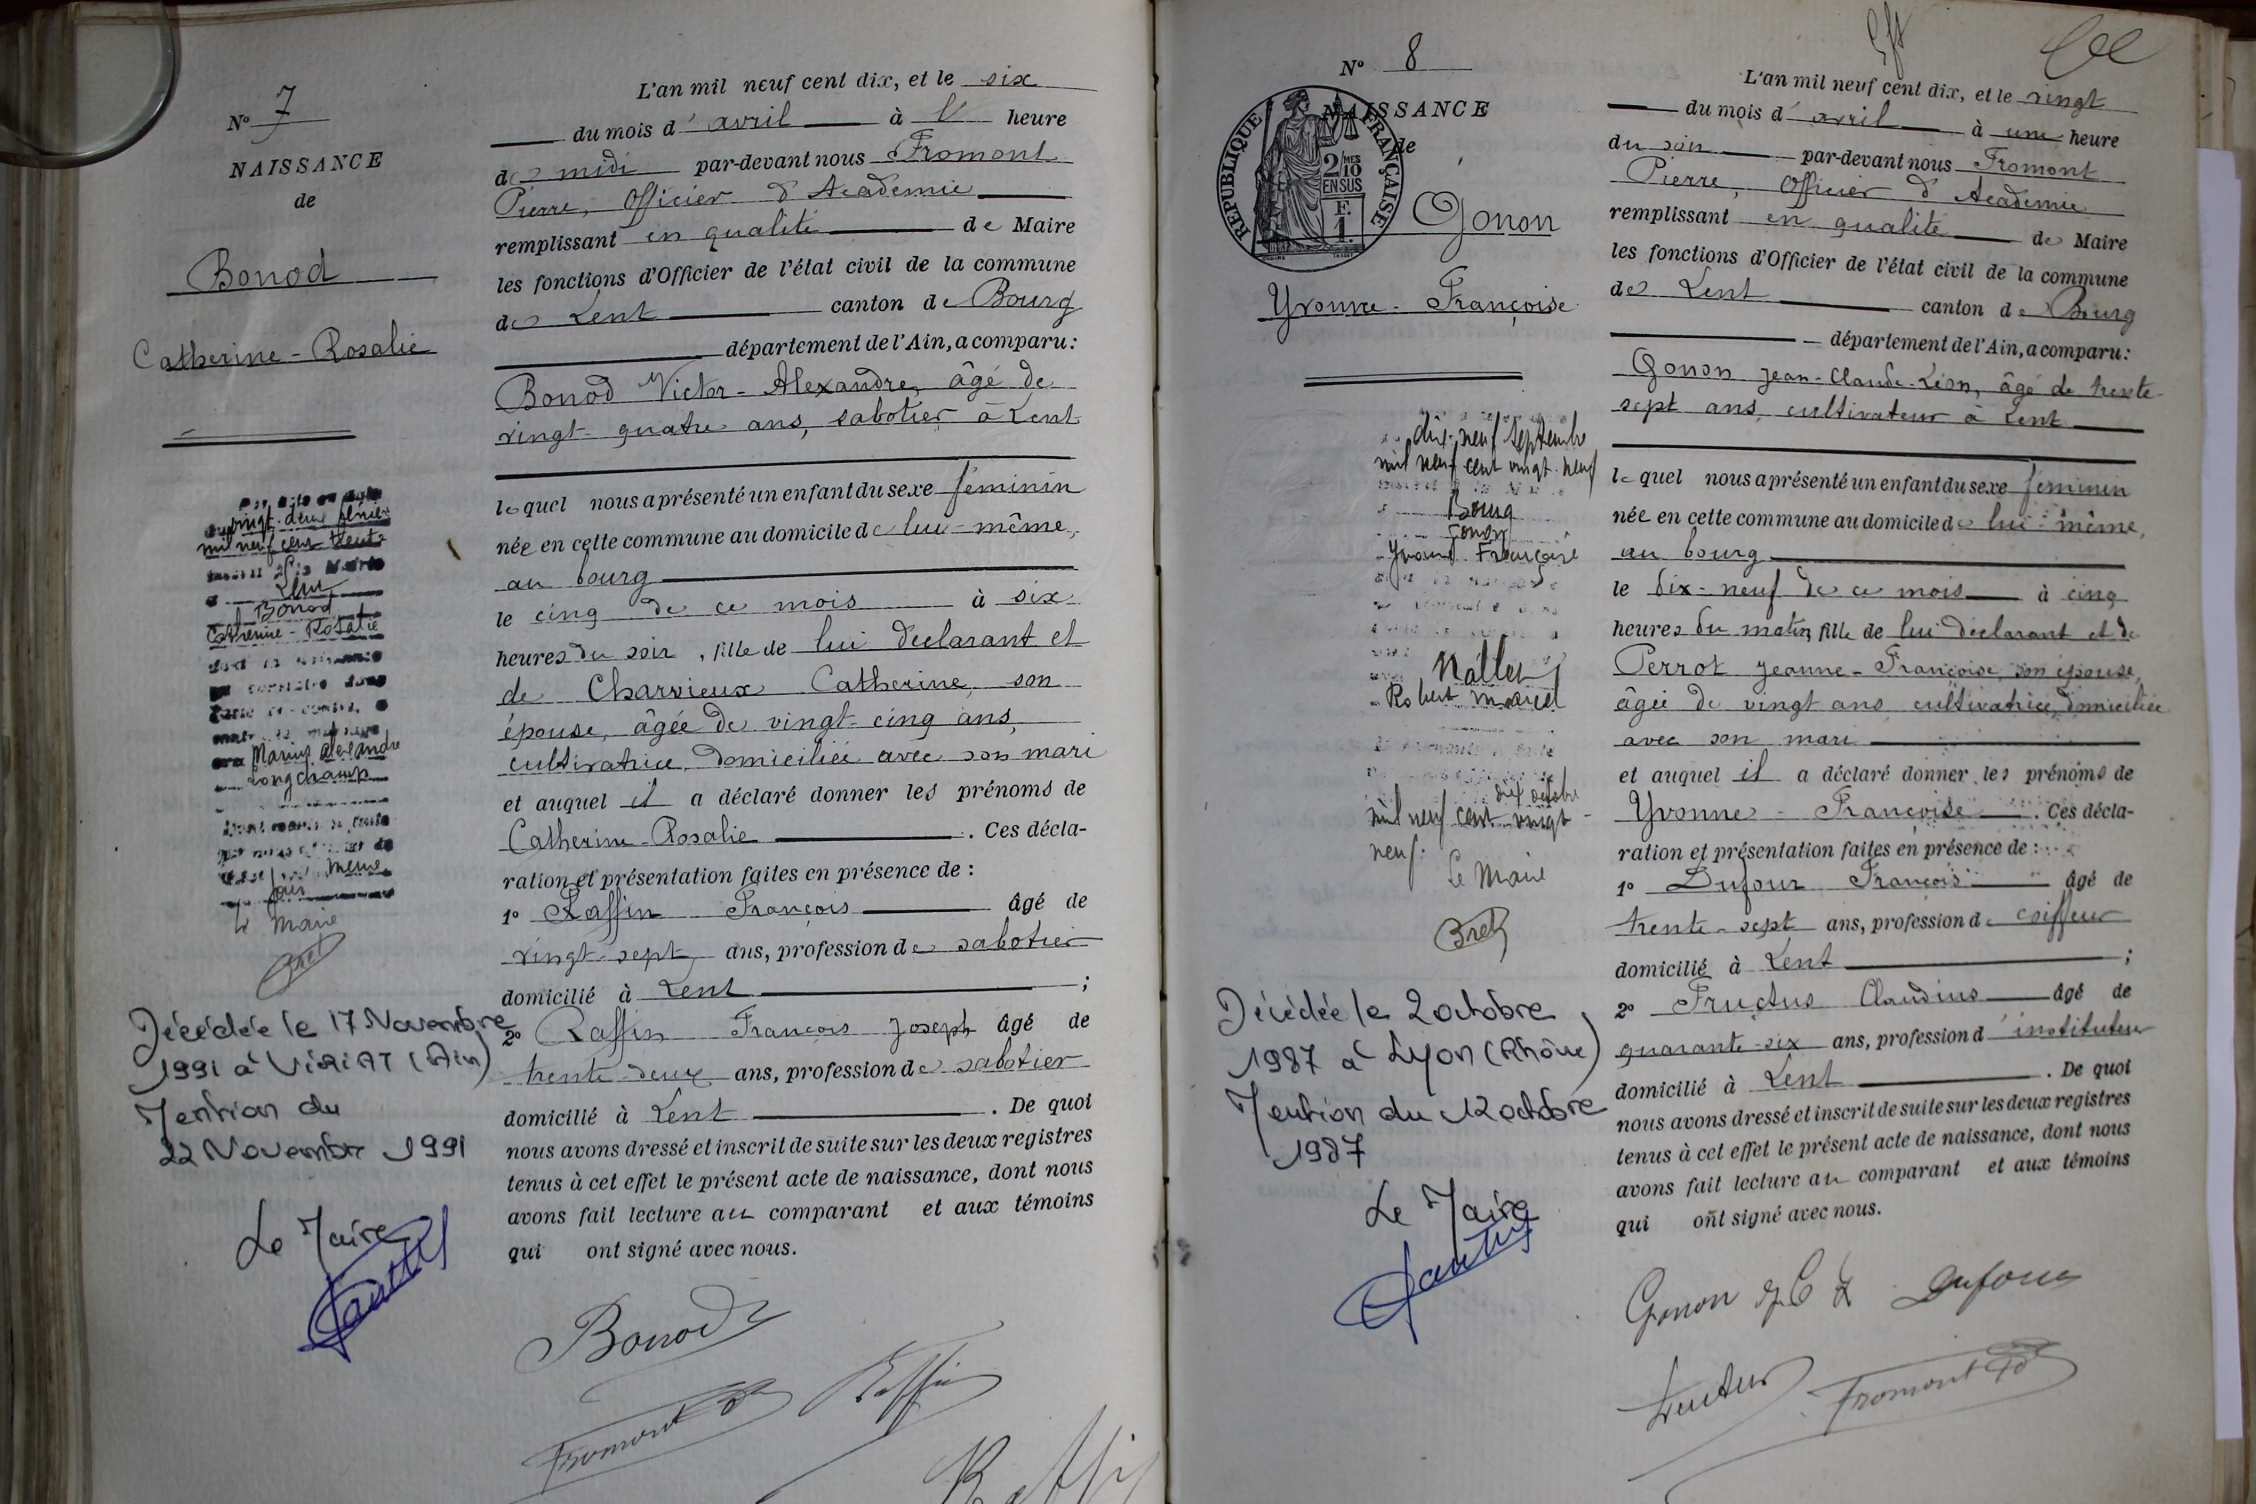 N° 7
NAISSANCE
de
Bonod
Catherine - Rosalie
vingt-deux février
mil neuf cent trente
Lent
Bonod
Catherine - Rosalie
Marius Alexandre
Longchamp
même
jour
Le Maire
Décédée le 17 Novembre
1991 à VIRIAT (Ain)
Mention du
22 Novembre 1991
Le Maire
L'an mil neuf cent dix, et le six
du mois d'avril à l' heure
de midi par-devant nous Fromont
Pierre, Officier d'Academie
remplissant en qualité de Maire
les fonctions d'Officier de l'état civil de la commune
de Lent canton de Bourg
département de l'Ain, a comparu:
Bonod Victor-Alexandre, âgé de
vingt-quatre ans, sabotier à Lent
lequel nous a présenté un enfant du sexe féminin
née en cette commune au domicile de lui-même,
au bourg
le cinq de ce mois à six
heures du soir, fille de lui déclarant et
de Charvieux Catherine, son
épouse, âgée de vingt-cinq ans,
cultivatrice, domiciliée avec son mari
et auquel il a déclaré donner les prénoms de
Catherine-Rosalie. Ces décla-
ration et présentation faites en présence de :
1° Raffin François âgé de
vingt-sept ans, profession de sabotier
domicilié à Lent ;
2° Raffin François Joseph âgé de
trente-deux ans, profession de sabotier
domicilié à Lent. De quoi
nous avons dressé et inscrit de suite sur les deux registres
tenus à cet effet le présent acte de naissance, dont nous
avons fait lecture au comparant et aux témoins
qui ont signé avec nous.
Bonod
Fromont Raffin
Raffin
N° 8
NAISSANCE
de
RÉPUBLIQUE FRANÇAISE
2 MES
10
EN SUS
F.
1.
Gonon
Yvonne - Françoise
dix-neuf septembre
mil neuf cent vingt-neuf
Bourg
Gonon
Yvonne Françoise
Robert Marcel
dix octobre
mil neuf cent vingt-
neuf.
Le Maire
Décédée le 2 octobre
1987 à Lyon (Rhône)
Mention du 12 octobre
1987
Le Maire
L'an mil neuf cent dix, et le vingt
du mois d'avril à une heure
du soir par-devant nous Fromont
Pierre, Officier d'Academie
remplissant en qualité de Maire
les fonctions d'Officier de l'état civil de la commune
de Lent canton de Bourg
département de l'Ain, a comparu:
Gonon Jean-Claude-Léon, âgé de trente-
sept ans, cultivateur à Lent
lequel nous a présenté un enfant du sexe féminin
née en cette commune au domicile de lui-même,
au bourg
le dix-neuf de ce mois à cinq
heures du matin, fille de lui déclarant et de
Perrot Jeanne-Françoise, son épouse,
âgée de vingt ans, cultivatrice, domiciliée
avec son mari
et auquel il a déclaré donner les prénoms de
Yvonne - Françoise. Ces décla-
ration et présentation faites en présence de :
1° Dufour François âgé de
trente-sept ans, profession de coiffeur
domicilié à Lent ;
2° Fructus Claudius âgé de
quarante-six ans, profession d'instituteur
domicilié à Lent. De quoi
nous avons dressé et inscrit de suite sur les deux registres
tenus à cet effet le présent acte de naissance, dont nous
avons fait lecture au comparant et aux témoins
qui ont signé avec nous.
Gonon J C L Dufour
Fructus Fromont